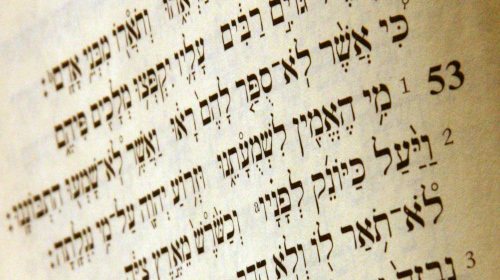 וְתֹאֲרוֹ מִבְּנֵי אָדָם׃
גּוֹיִם רַבִּים עָלָיו יִקְפְּצוּ מְלָכִים פִּיהֶם
כִּי אֲשֶׁר לֹא־סֻפַּר לָהֶם רָאוּ וַאֲשֶׁר לֹא־שָׁמְעוּ הִתְבּוֹנָנוּ׃
53 1 מִי הֶאֱמִין לִשְׁמֻעָתֵנוּ וּזְרוֹעַ יְהוָה עַל־מִי נִגְלָתָה׃
2 וַיַּעַל כַּיּוֹנֵק לְפָנָיו a וְכַשֹּׁרֶשׁ מֵאֶרֶץ צִיָּה
לֹא־תֹאַר לוֹ וְלֹא הָדָר
3